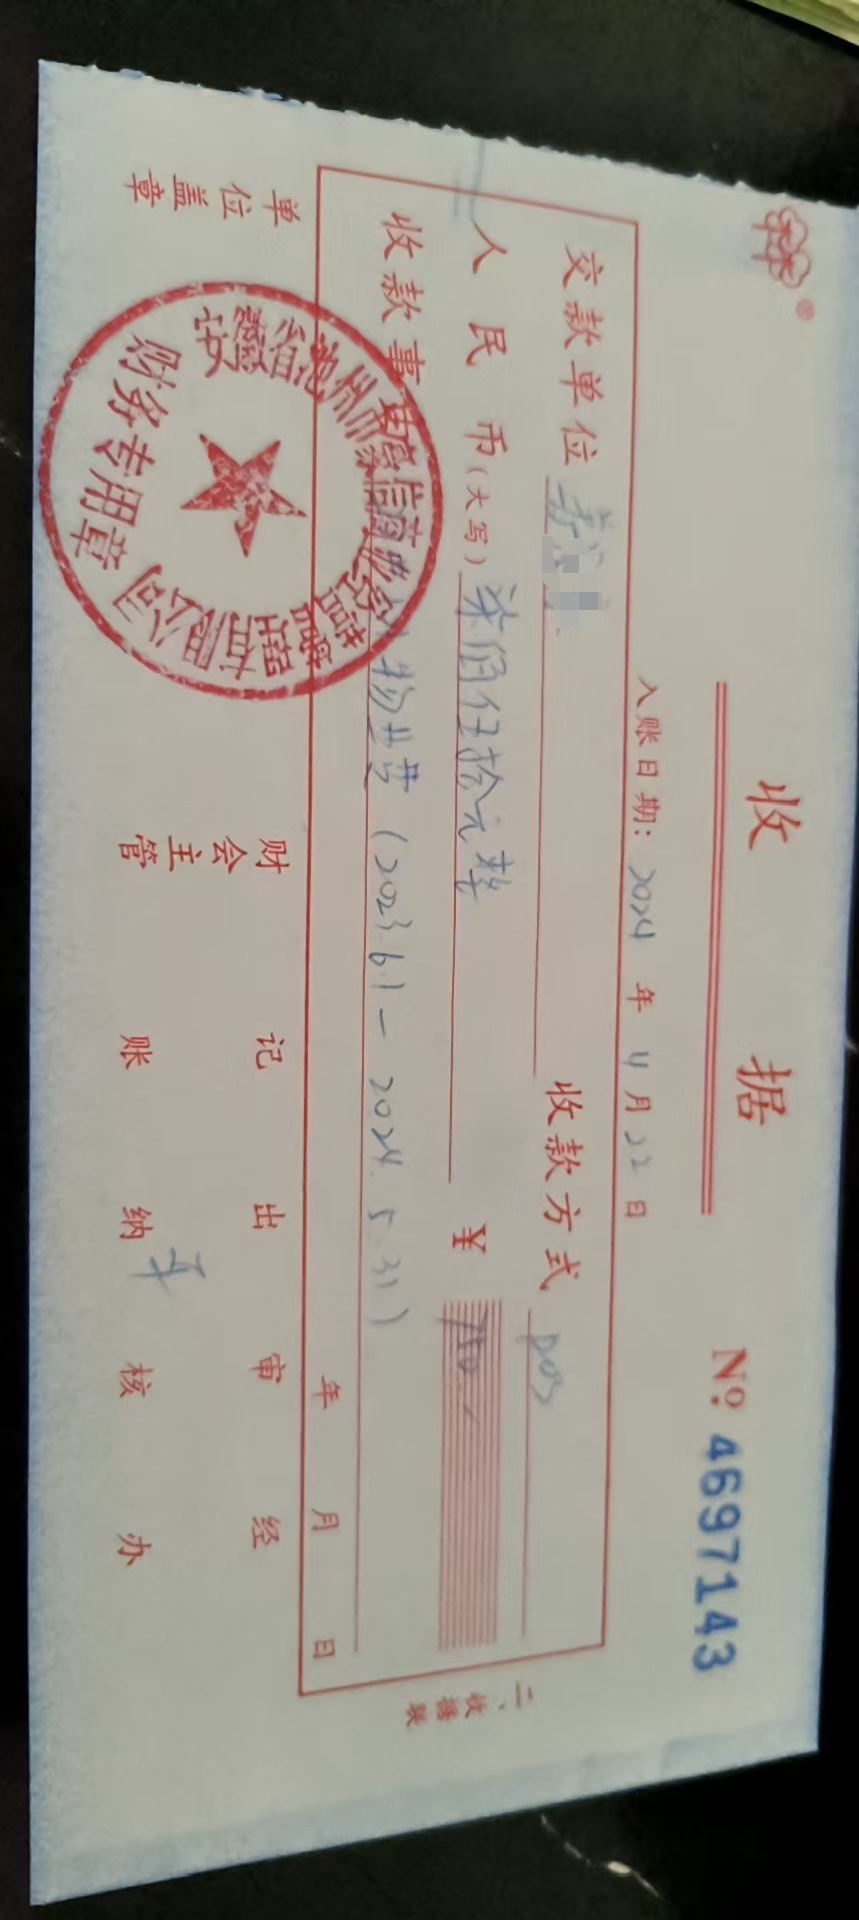 收 据
№ 4697143
入账日期: 2024 年 4 月 22 日
交款单位 收款方式 pos
人民币(大写) 柒佰伍拾元整 ¥ 750.-
收款事 物业费 (2023.6.1-2024.5.31)
年 月 日
二、收据联
单位盖章 财会主管 记账 出纳 审核 经办
安徽省池州市 信商 有限公司
财务专用章